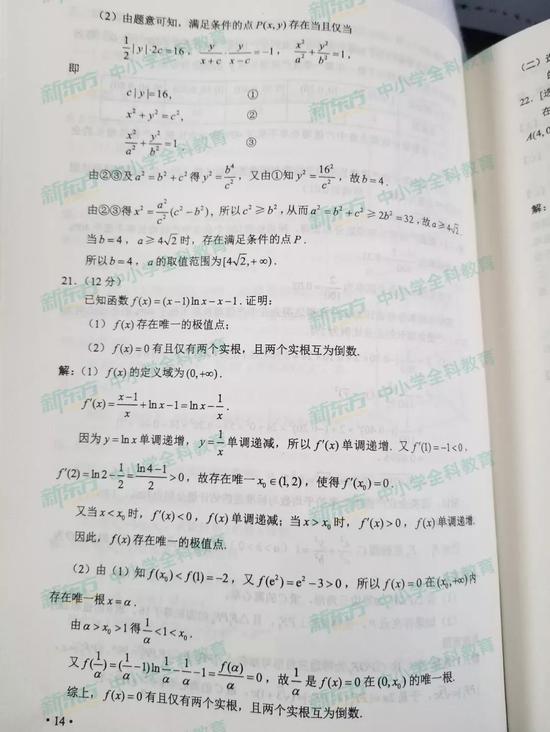 (2) 由题意可知,满足条件的点P(x,y)存在当且仅当
1/2|y|·2c=16, y/(x+c)·y/(x-c)=-1, x²/a²+y²/b²=1,
即
c|y|=16, ①
x²+y²=c², ②
x²/a²+y²/b²=1. ③
由②③及a²=b²+c²得y²=b⁴/c²,又由①知y²=16²/c²,故b=4.
由②③得x²=a²/c²(c²-b²),所以c²≥b²,从而a²=b²+c²≥2b²=32,故a≥4√2.
当b=4,a≥4√2时,存在满足条件的点P.
所以b=4,a的取值范围为[4√2,+∞).
21.(12分)
已知函数f(x)=(x-1)lnx-x-1.证明:
(1) f(x)存在唯一的极值点;
(2) f(x)=0有且仅有两个实根,且两个实根互为倒数.
解:(1) f(x)的定义域为(0,+∞).
f′(x)=(x-1)/x+lnx-1=lnx-1/x.
因为y=lnx单调递增,y=1/x单调递减,所以f′(x)单调递增.又f′(1)=-1<0,
f′(2)=ln2-1/2=(ln4-1)/2>0,故存在唯一x₀∈(1,2),使得f′(x₀)=0.
又当x<x₀时,f′(x)<0,f(x)单调递减;当x>x₀时,f′(x)>0,f(x)单调递增.
因此,f(x)存在唯一的极值点.
(2)由(1)知f(x₀)<f(1)=-2,又f(e²)=e²-3>0,所以f(x)=0在(x₀,+∞)内
存在唯一根x=α.
由α>x₀>1得1/α<1<x₀.
又f(1/α)=(1/α-1)ln1/α-1/α-1=f(α)/α=0,故1/α是f(x)=0在(0,x₀)的唯一根.
综上,f(x)=0有且仅有两个实根,且两个实根互为倒数.
·14·
(二)选
22.[选
在
A(4,0
解:
新东方 中小学全科教育